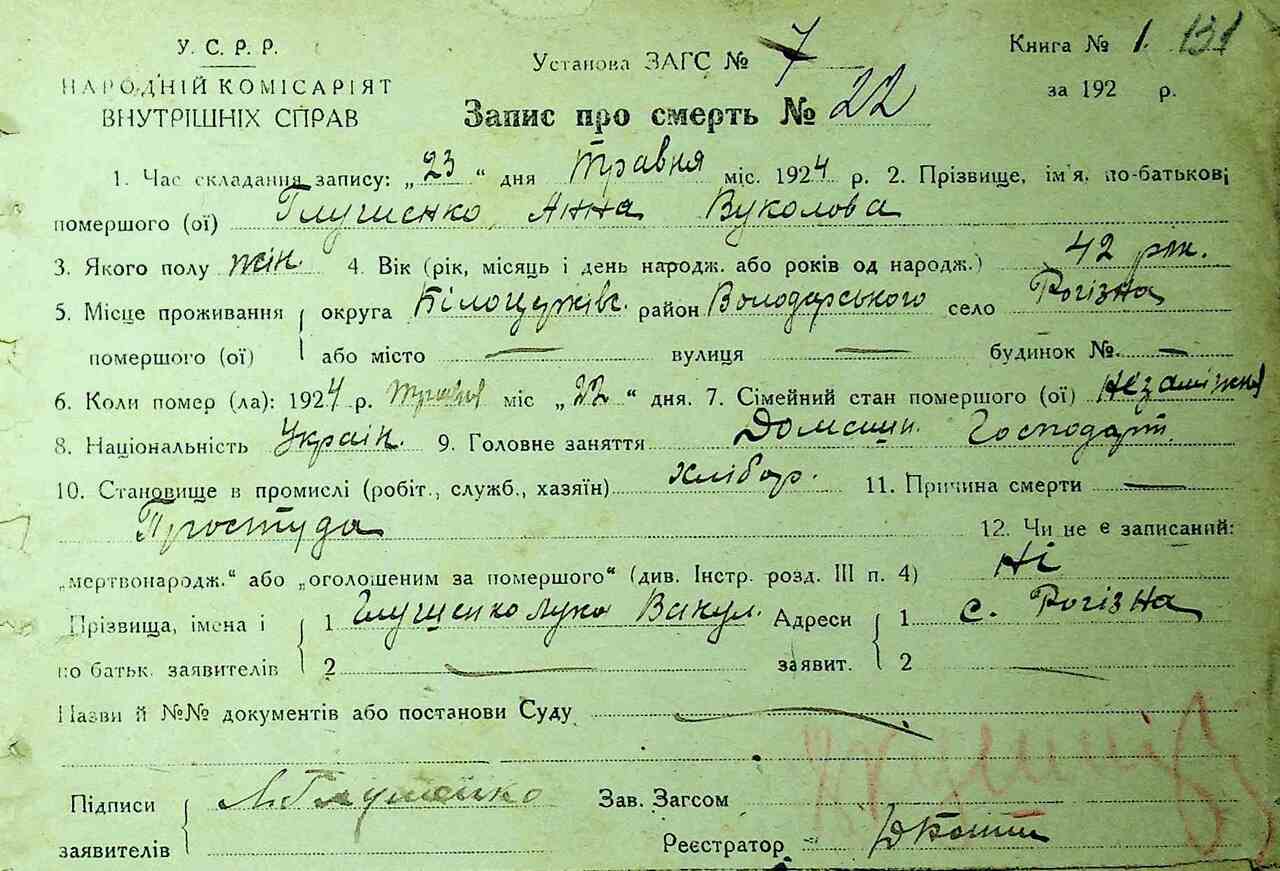 У. С. Р. Р.
НАРОДНІЙ КОМІСАРІЯТ
ВНУТРІШНІХ СПРАВ
Установа ЗАГС № 7
Запис про смерть № 22
Книга № 1. 131
за 192 р.
1. Час складання запису: „23“ дня травня міс. 1924 р. 2. Прізвище, ім'я, по-батькові
помершого (ої) Глушенко Анна Вуколова
3. Якого полу жін. 4. Вік (рік, місяць і день народж. або років од народж.) 42 рік.
5. Місце проживання округа Білоцерківс. район Володарського село Рогізна
помершого (ої) або місто — вулиця — будинок №. —
6. Коли помер (ла): 1924 р. травня міс „22“ дня. 7. Сімейний стан помершого (ої) Незаміжня
8. Національність Україн. 9. Головне заняття Домашн. Господарт.
10. Становище в промислі (робіт., служб., хазяїн) хлібор. 11. Причина смерти —
Простуда 12. Чи не є записаний:
„мертвонародж.“ або „оголошеним за помершого“ (див. Інстр. розд. III п. 4) Ні
Прізвища, імена і 1 Глущенко Лука Вакул. Адреси 1 с. Рогізна
по батьк. заявителів 2 — заявит. 2 —
Назви й №№ документів або постанови Суду —
Підписи Л. Глушенко Зав. Загсом
заявителів Реєстратор